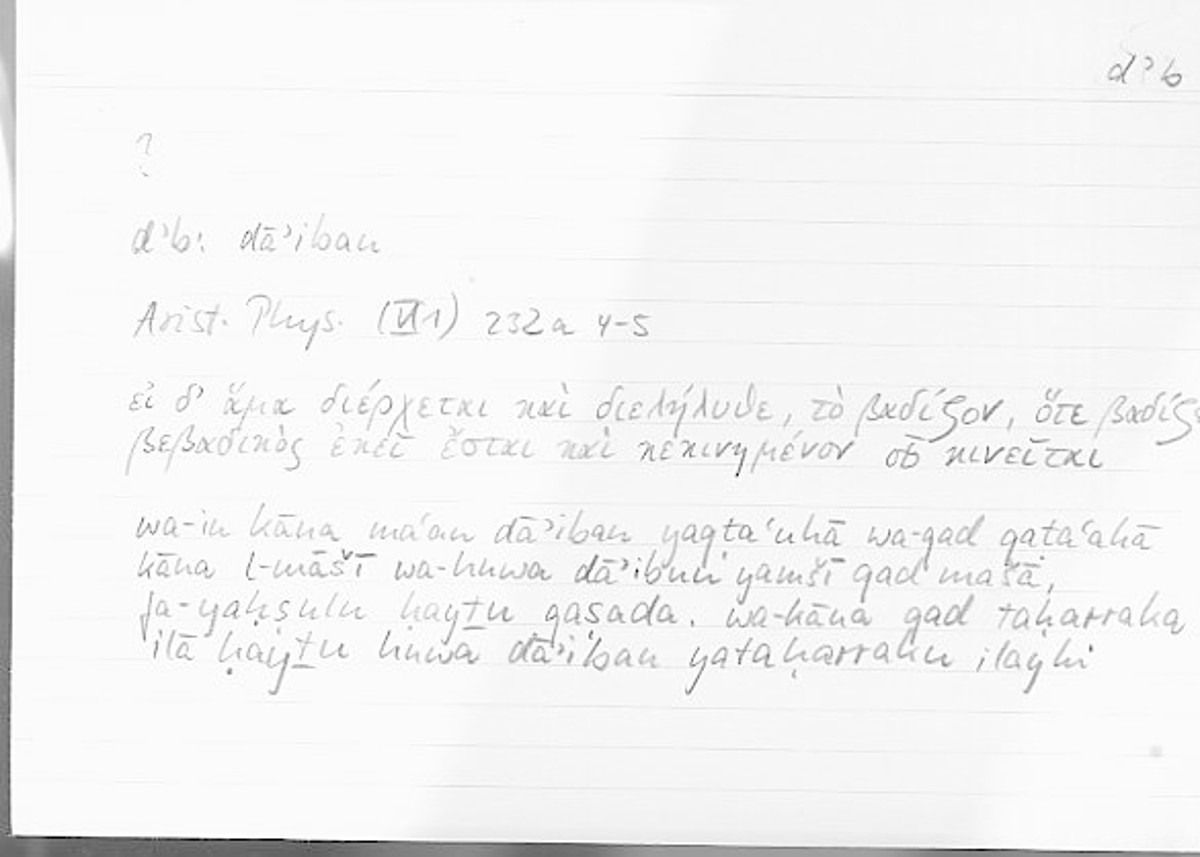 dʾb
?
dʾb: dāʾiban
Arist. Phys. (VI 1) 232a 4-5
εἰ δ' ἅμα διέρχεται καὶ διελήλυθε, τὸ βαδίζον, ὅτε βαδίζ
βεβαδικὸς ἐκεῖ ἔσται καὶ κεκινημένον οὗ κινεῖται
wa-in kāna maʿan dāʾiban yaqṭaʿuhā wa-qad qaṭaʿahā
kāna l-māšī wa-huwa dāʾibun yamšī qad mašā,
fa-yaḥṣulu ḥayṯu qaṣada. wa-kāna qad taḥarraka
ilā ḥayṯu huwa dāʾiban yataḥarraku ilayhi